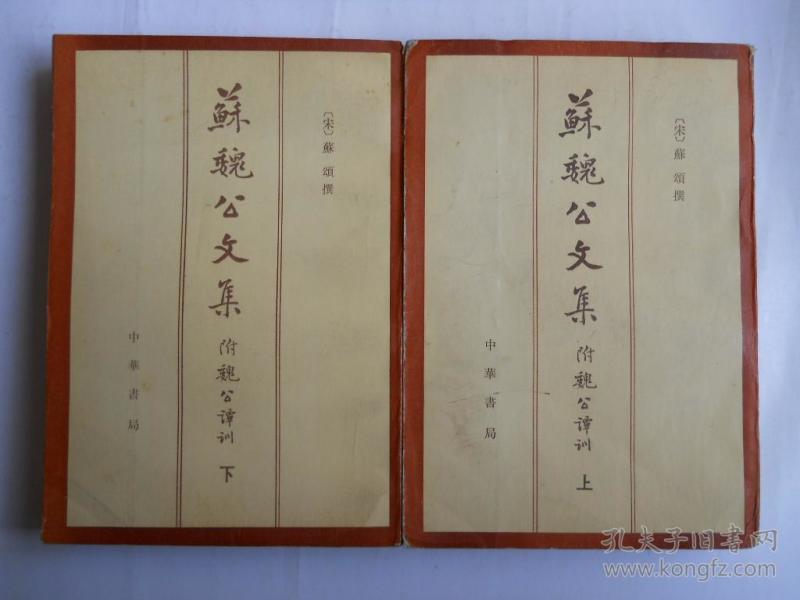 蘇魏公文集 附魏公譚訓 下
〔宋〕蘇頌撰
中華書局
〔宋〕蘇頌撰
蘇魏公文集 附魏公譚訓 上
中華書局
孔夫子旧书网
www.kongfz.com